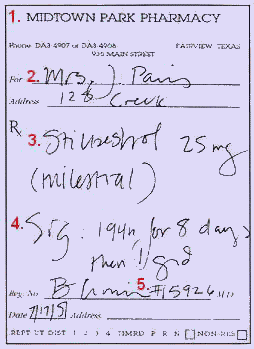 1. MIDTOWN PARK PHARMACY
Phone DA3-4907 or DA3-4908 FAIRVIEW TEXAS
935 MAIN STREET
For 2. Mrs. J. Paris
Address 128 Creek
Rx
3. Stilbestrol 25 mg
(milestrol)
4. Sig: for 8 days
then 1
Reg. No 5. #15926
Date 7/17/5 Address
REPT UT DIST 1 2 3 4 TIMRD P R N NON-RES